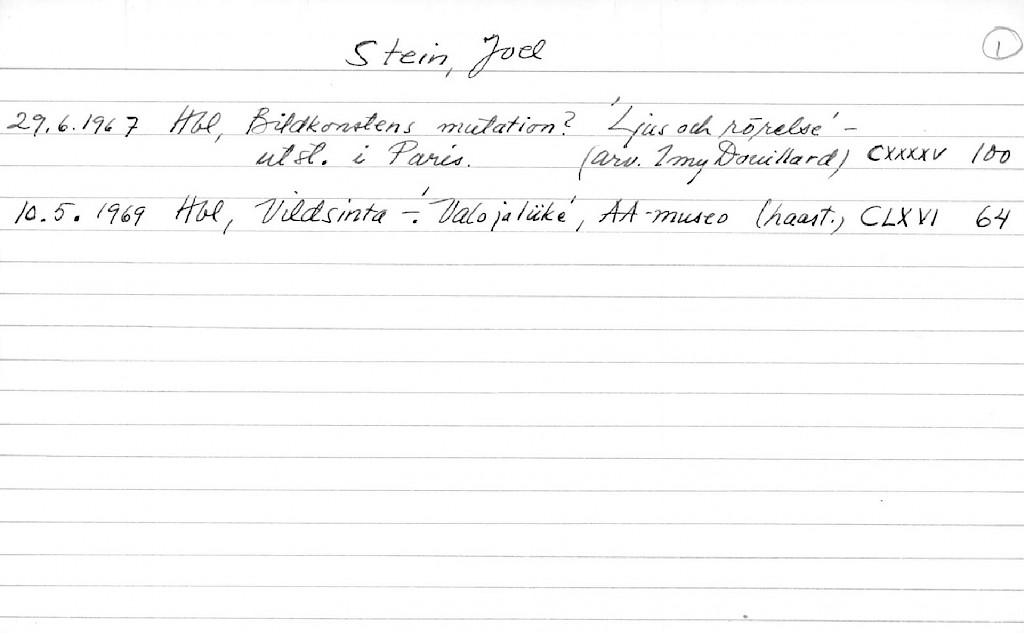 Stein, Joel
1
29.6.1967 Hbl, Bildkonstens mutation? 'Ljus och rörelse' -
utst. i Paris. (arv. Imy Douillard) CXXXXV 100
10.5.1969 Hbl, Vildsinta -. 'Valo ja liike', AA-museo (haast.) CLXVI 64